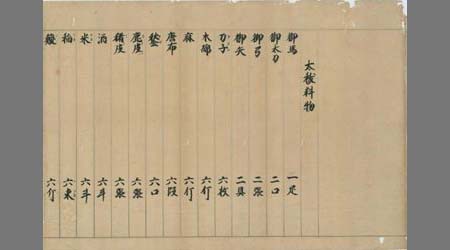 太祓料物
御馬 一疋
御太刀 二口
御弓 二張
御矢 二具
刀子 六枚
木綿 六斤
麻 六斤
庸布 六段
鍬 六口
鹿皮 六張
猪皮 六張
酒 六斗
米 六斗
稲 六束
鰒 六斤